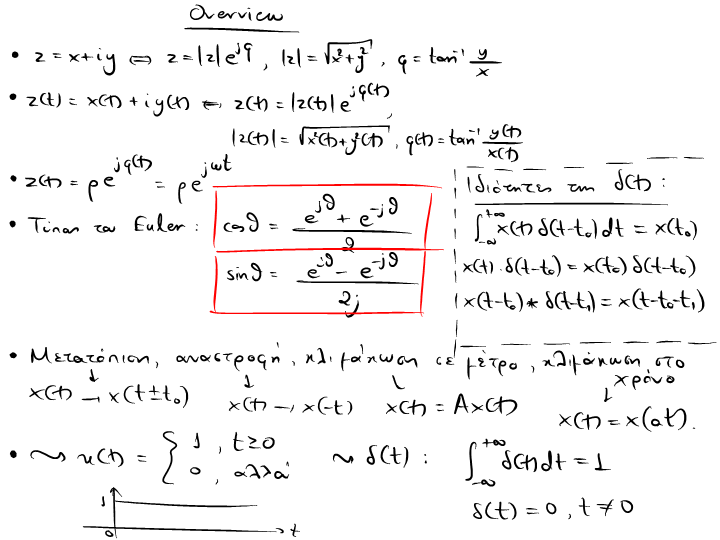 Overview
• z = x+iy ⇔ z = |z|e^{jφ}, |z| = √(x²+y²), φ = tan⁻¹ y/x
• z(t) = x(t) + iy(t) ⇔ z(t) = |z(t)|e^{jφ(t)}
|z(t)| = √(x²(t)+y²(t)), φ(t) = tan⁻¹ y(t)/x(t)
• z(t) = ρe^{jφ(t)} = ρe^{jωt}
• Τύποι του Euler: cosθ = (e^{jθ} + e^{-jθ})/2
sinθ = (e^{jθ} - e^{-jθ})/2j
Ιδιότητες της δ(t):
∫_{-∞}^{+∞} x(t) δ(t-t₀) dt = x(t₀)
x(t)·δ(t-t₀) = x(t₀) δ(t-t₀)
x(t-t₀) * δ(t-t₁) = x(t-t₀-t₁)
• Μετατόπιση, αναστροφή, κλιμάκωση σε μέτρο, κλιμάκωση στο χρόνο
x(t) → x(t±t₀) x(t) → x(-t) x(t) = Ax(t) x(t) = x(at).
• ~ u(t) = { 1, t≥0
0, αλλού
~ δ(t): ∫_{-∞}^{+∞} δ(t) dt = 1
δ(t) = 0, t ≠ 0
1
0 t